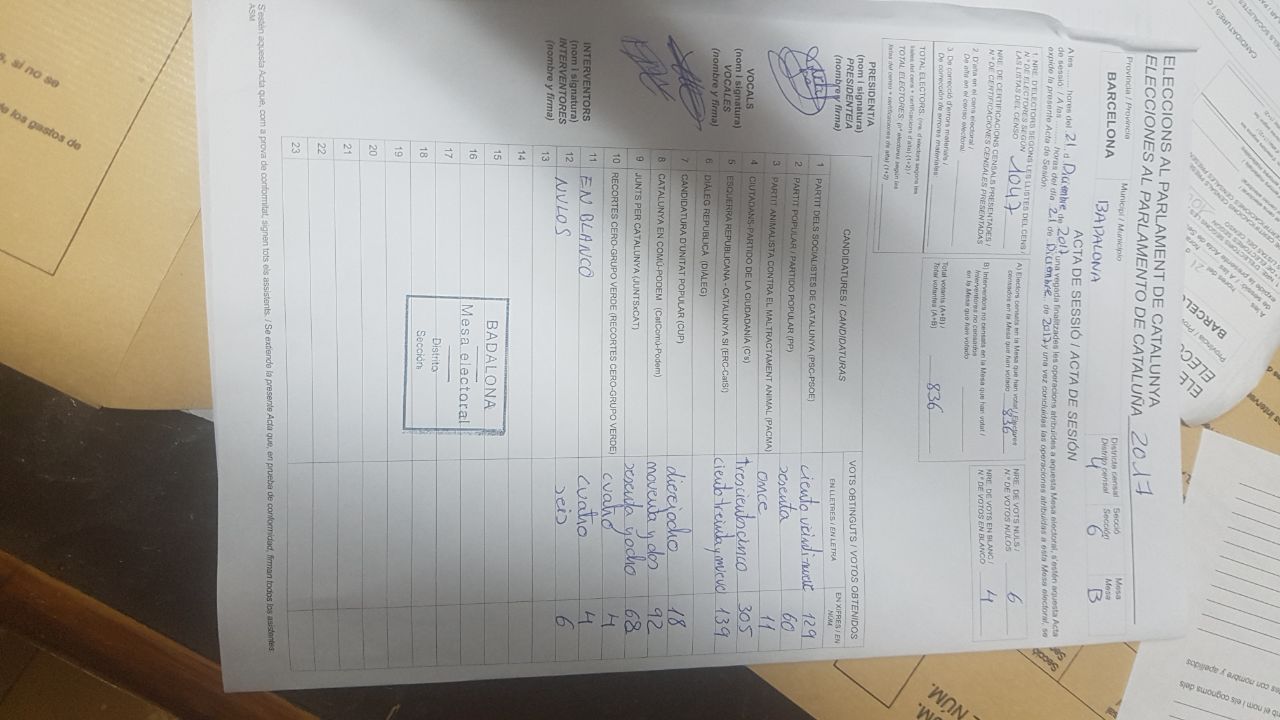 ELECCIONS AL PARLAMENT DE CATALUNYA
ELECCIONES AL PARLAMENTO DE CATALUÑA 2017
Província / Provincia
BARCELONA
Municipi / Municipio
BADALONA
Districte censal
Distrito censal
4
Secció
Sección
6
Mesa
Mesa
B
ACTA DE SESSIÓ / ACTA DE SESIÓN
A les ........ hores del 21 d Diciembre de 2017 una vegada finalitzades les operacions atribuïdes a aquesta Mesa electoral, s'estén aquesta Acta
de sessió. / A las ........ horas del día 21 de Diciembre de 2017 y una vez concluidas las operaciones atribuidas a esta Mesa electoral, se
expide la presente Acta de Sesión.
1. NRE. D'ELECTORS SEGONS LES LLISTES DEL CENS /
N.º DE ELECTORES SEGÚN
LAS LISTAS DEL CENSO 1047
NRE. DE CERTIFICACIONS CENSALS PRESENTADES /
N.º DE CERTIFICACIONES CENSALES PRESENTADAS
2. D'alta en el cens electoral /
De alta en el censo electoral
3. De correcció d'errors materials /
De corrección de errores materiales
TOTAL ELECTORS: (nre. d'electors segons les
llistes del cens + certificacions d'alta) (1+2) /
TOTAL ELECTORES: (nº electores según las
listas del censo + certificaciones de alta) (1+2)
A) Electors censats en la Mesa que han votat / Electores
censados en la Mesa que han votado 836
B) Interventors no censats en la Mesa que han votat /
Interventores no censados
en la Mesa que han votado
Total votants (A+B) /
Total votantes (A+B) 836
NRE. DE VOTS NULS /
N.º DE VOTOS NULOS 6
NRE. DE VOTS EN BLANC /
N.º DE VOTOS EN BLANCO 4
PRESIDENT/A
(nom i signatura)
PRESIDENTE/A
(nombre y firma)
VOCALS
(nom i signatura)
VOCALES
(nombre y firma)
INTERVENTORS
(nom i signatura)
INTERVENTORES
(nombre y firma)
CANDIDATURES / CANDIDATURAS
VOTS OBTINGUTS / VOTOS OBTENIDOS
EN LLETRES / EN LETRA
EN XIFRES / EN NÚM.
1 PARTIT DELS SOCIALISTES DE CATALUNYA (PSC-PSOE) ciento veintinueve 129
2 PARTIT POPULAR / PARTIDO POPULAR (PP) sesenta 60
3 PARTIT ANIMALISTA CONTRA EL MALTRACTAMENT ANIMAL (PACMA) once 11
4 CIUTADANS-PARTIDO DE LA CIUDADANÍA (C's) trescientos cinco 305
5 ESQUERRA REPUBLICANA - CATALUNYA SÍ (ERC-CatSí) ciento treinta y nueve 139
6 DIÀLEG REPUBLICÀ (DIÀLEG)
7 CANDIDATURA D'UNITAT POPULAR (CUP) dieciocho 18
8 CATALUNYA EN COMÚ-PODEM (CatComú-Podem) noventa y dos 92
9 JUNTS PER CATALUNYA (JUNTSxCAT) sesenta y ocho 68
10 RECORTES CERO-GRUPO VERDE (RECORTES CERO-GRUPO VERDE) cuatro 4
11 EN BLANCO cuatro 4
12 NULOS seis 6
13
14
15
16
17
18
19
20
21
22
23
BADALONA
Mesa electoral
Distrito
Sección
S'estén aquesta Acta que, com a prova de conformitat, signen tots els assistents. / Se extiende la presente Acta que, en prueba de conformidad, firman todos los asistentes.
ASM
s, si no se
de los gastos de